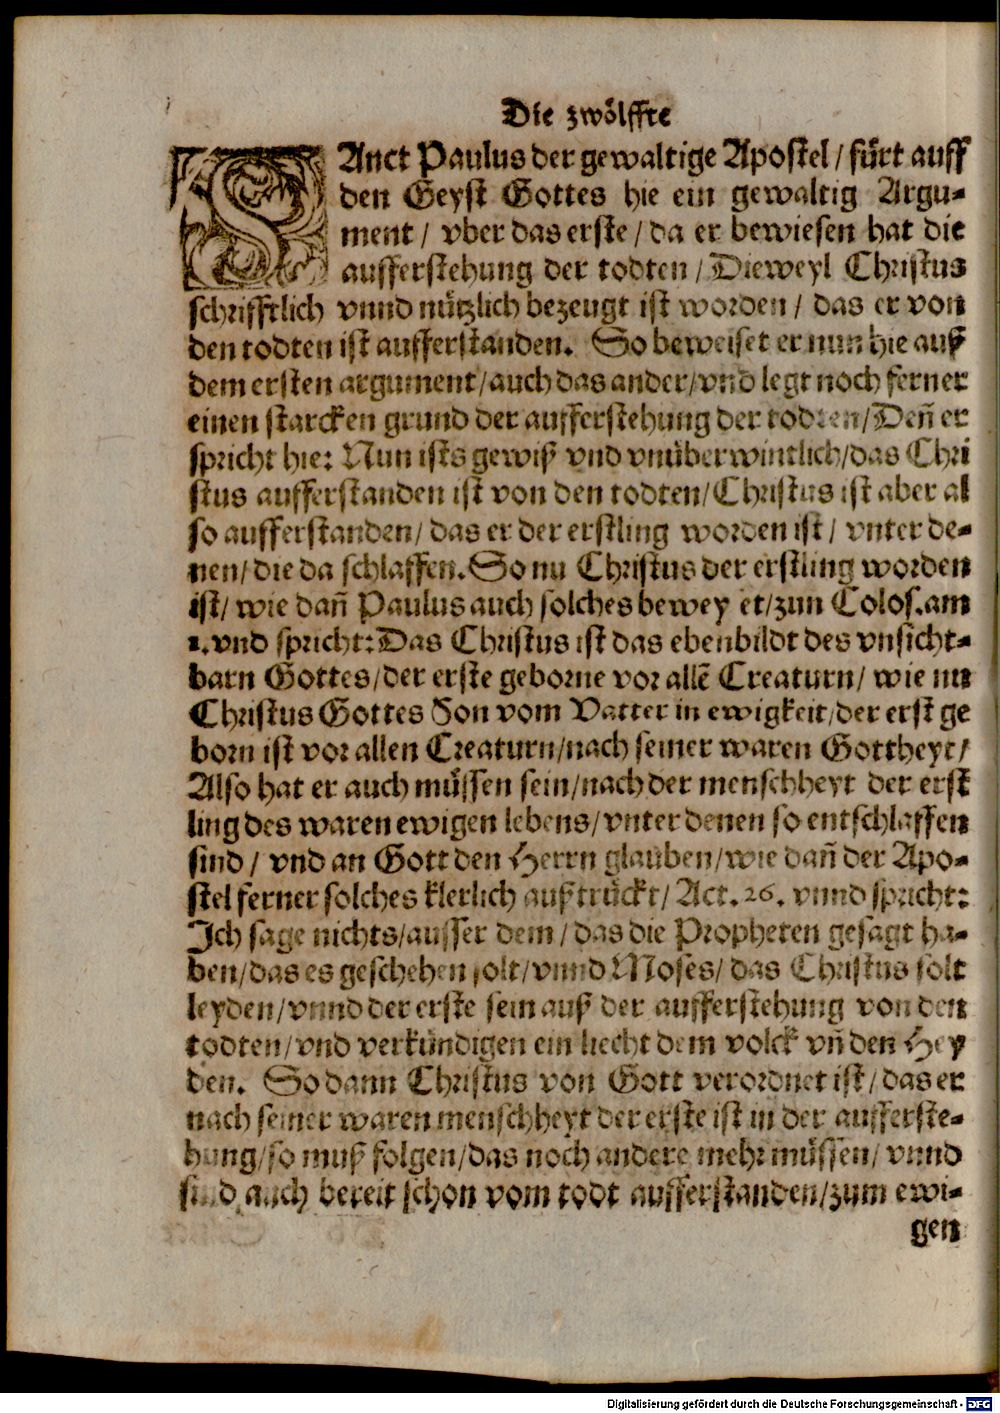 Die zwölffte
SAnct Paulus der gewaltige Apostel / fürt auff
den Geyst Gottes hie ein gewaltig Argu-
ment / vber das erste / da er bewiesen hat die
aufferstehung der todten / Dieweyl Christus
schrifftlich vnnd nützlich bezeugt ist worden / das er von
den todten ist aufferstanden. So beweiset er nun hie auß
dem ersten argument / auch das ander / vnd legt noch ferner
einen starcken grund der aufferstehung der todten / Deñ er
spricht hie: Nun ists gewiß vnd vnüberwintlich / das Chri
stus aufferstanden ist von den todten / Christus ist aber al
so aufferstanden / das er der erstling worden ist / vnter de-
nen / die da schlaffen. So nu Christus der erstling worden
ist / wie dañ Paulus auch solches bewey et / zun Colos. am
1. vnd spricht: Das Christus ist das ebenbildt des vnsicht-
barn Gottes / der erste geborne vor allẽ Creaturn / wie nu
Christus Gottes Son vom Vatter in ewigkeit / der erst ge
born ist vor allen Creaturn / nach seiner waren Gottheyt /
Also hat er auch müssen sein / nach der menschheyt der erst
ling des waren ewigen lebens / vnter denen so entschlaffen
sind / vnd an Gott den Herrn glauben / wie dañ der Apo-
stel ferner solches klerlich außtrückt / Act. 26. vnnd spricht:
Ich sage nichts / ausser dem / das die Propheten gesagt ha-
ben / das es geschehen solt / vnnd Moses / das Christus solt
leyden / vnnd der erste sein auß der aufferstehung von den
todten / vnd verkündigen ein liecht dem volck vñ den Hey
den. So dann Christus von Gott verordnet ist / das er
nach seiner waren menschheyt der erste ist in der aufferste-
hung / so muß folgen / das noch andere mehr müssen / vnnd
sind auch bereit schon vom todt aufferstanden / zum ewi-
gen
Digitalisierung gefördert durch die Deutsche Forschungsgemeinschaft - DFG